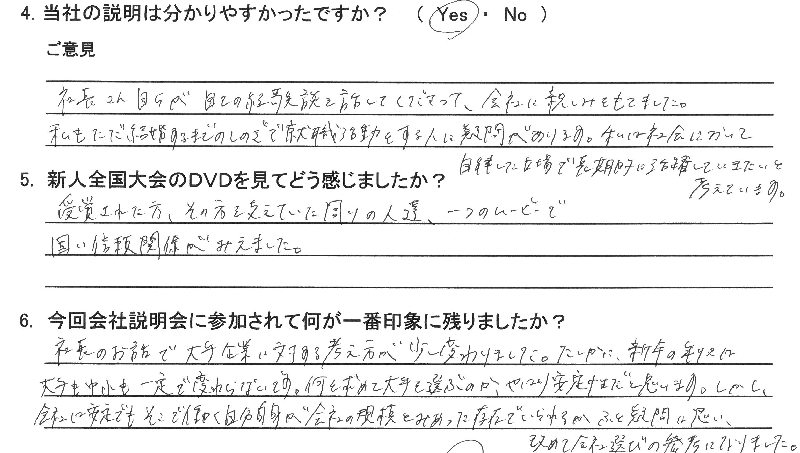 4. 当社の説明は分かりやすかったですか？ （ Yes ・ No ）
ご意見
社長さん自らが自らの経験談を話してくださって、会社に親しみをもてました。
私もただ結婚するまでのしのぎで就職活動をする人に疑問があります。私は社会において
自律した立場で長期的に活躍していきたいと
考えています。
5. 新人全国大会のＤＶＤを見てどう感じましたか？
受賞された方、その方を支えていた周りの人達、一つのムービーで
固い信頼関係がみえました。
6. 今回会社説明会に参加されて何が一番印象に残りましたか？
社長のお話で大手企業に対する考え方が少し変わりました。たしかに、新卒の
大手も中小も一定で変わらないです。何を求めて大手を選ぶのか、やはり安定すだと思います。しかし、
会社は安定でもそこで働く自分自身が会社の規模とみあった存在でいられるかふと疑問に思い、
改めて会社選びの参考になりました。